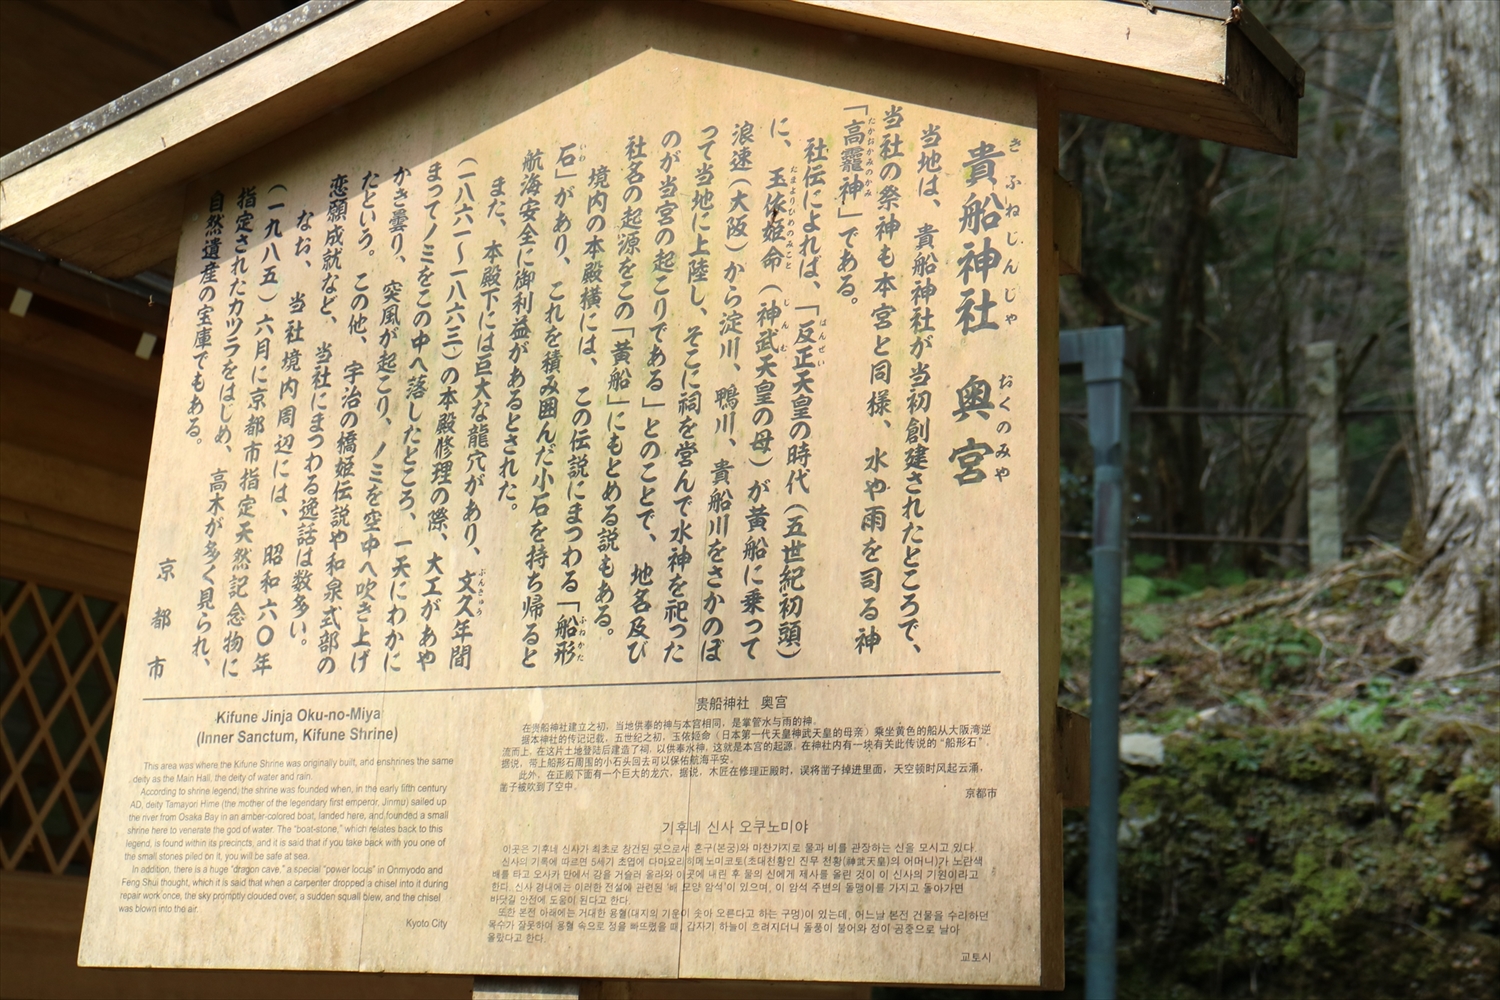 貴船神社 奥宮
きふねじんじゃ おくのみや
当地は、貴船神社が当初創建されたところで、
当社の祭神も本宮と同様、水や雨を司る神
「高龗神」である。
たかおかみのかみ
社伝によれば、「反正天皇の時代(五世紀初頭)
はんぜい
に、玉依姫命(神武天皇の母)が黄船に乗って
たまよりひめのみこと じんむ
浪速(大阪)から淀川、鴨川、貴船川をさかのぼ
って当地に上陸し、そこに祠を営んで水神を祀った
のが当宮の起こりである」とのことで、地名及び
社名の起源をこの「黄船」にもとめる説もある。
境内の本殿横には、この伝説にまつわる「船形
ふねかた
石」があり、これを積み囲んだ小石を持ち帰ると
いわ
航海安全に御利益があるとされた。
また、本殿下には巨大な龍穴があり、文久年間
ぶんきゅう
(一八六一〜一八六三)の本殿修理の際、大工があや
まってノミをこの中へ落したところ、一天にわかに
かき曇り、突風が起こり、ノミを空中へ吹き上げ
たという。この他、宇治の橋姫伝説や和泉式部の
恋願成就など、当社にまつわる逸話は数多い。
なお、当社境内周辺には、昭和六〇年
(一九八五)六月に京都市指定天然記念物に
指定されたカツラをはじめ、高木が多く見られ、
自然遺産の宝庫でもある。
京都市
Kifune Jinja Oku-no-Miya
(Inner Sanctum, Kifune Shrine)
This area was where the Kifune Shrine was originally built, and enshrines the same
deity as the Main Hall, the deity of water and rain.
According to shrine legend, the shrine was founded when, in the early fifth century
AD, deity Tamayori Hime (the mother of the legendary first emperor, Jinmu) sailed up
the river from Osaka Bay in an amber-colored boat, landed here, and founded a small
shrine here to venerate the god of water. The "boat-stone," which relates back to this
legend, is found within its precincts, and it is said that if you take back with you one of
the small stones piled on it, you will be safe at sea.
In addition, there is a huge "dragon cave," a special "power locus" in Onmyodo and
Feng Shui thought, which it is said that when a carpenter dropped a chisel into it during
repair work once, the sky promptly clouded over, a sudden squall blew, and the chisel
was blown into the air.
Kyoto City
贵船神社 奥宫
在贵船神社建立之初,当地供奉的神与本宫相同,是掌管水与雨的神。
据本神社的传记记载,五世纪之初,玉依姬命(日本第一代天皇神武天皇的母亲)乘坐黄色的船从大阪湾逆
流而上,在这片土地登陆后建造了祠,以供奉水神,这就是本宫的起源,在神社内有一块有关此传说的"船形石",
据说,带上船形石周围的小石头回去可以保佑航海平安。
此外,在正殿下面有一个巨大的龙穴,据说,木匠在修理正殿时,误将凿子掉进里面,天空顿时风起云涌,
凿子被吹到了空中。
京都市
기후네 신사 오쿠노미야
이곳은 기후네 신사가 최초로 창건된 곳으로서 혼구(본궁)와 마찬가지로 물과 비를 관장하는 신을 모시고 있다.
신사의 기록에 따르면 5세기 초엽에 다마요리히메노미코토(초대천황인 진무 천황(神武天皇)의 어머니)가 노란색
배를 타고 오사카 만에서 강을 거슬러 올라와 이곳에 내린 후 물의 신에게 제사를 올린 것이 이 신사의 기원이라고
한다. 신사 경내에는 이러한 전설에 관련된 '배 모양 암석'이 있으며, 이 암석 주변의 돌멩이를 가지고 돌아가면
바닷길 안전에 도움이 된다고 한다.
또한 본전 아래에는 거대한 용혈(대지의 기운이 솟아 오른다고 하는 구멍)이 있는데, 어느날 본전 건물을 수리하던
목수가 잘못하여 용혈 속으로 정을 빠뜨렸을 때, 갑자기 하늘이 흐려지더니 돌풍이 불어와 정이 공중으로 날아
올랐다고 한다.
교토시